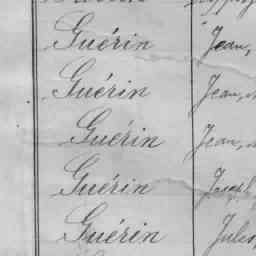 Guérin Jean,
Guérin Jean,
Guérin Jean,
Guérin Joseph
Guérin Jules,